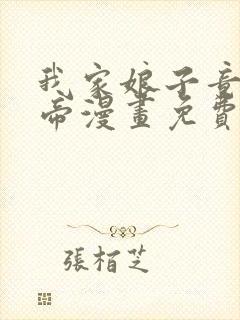 我家娘子竟
帝漫畫免費
張栢芝